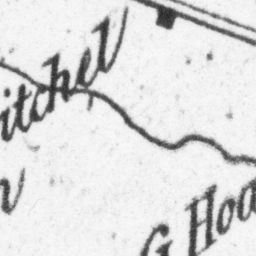 itchel
G Hoa